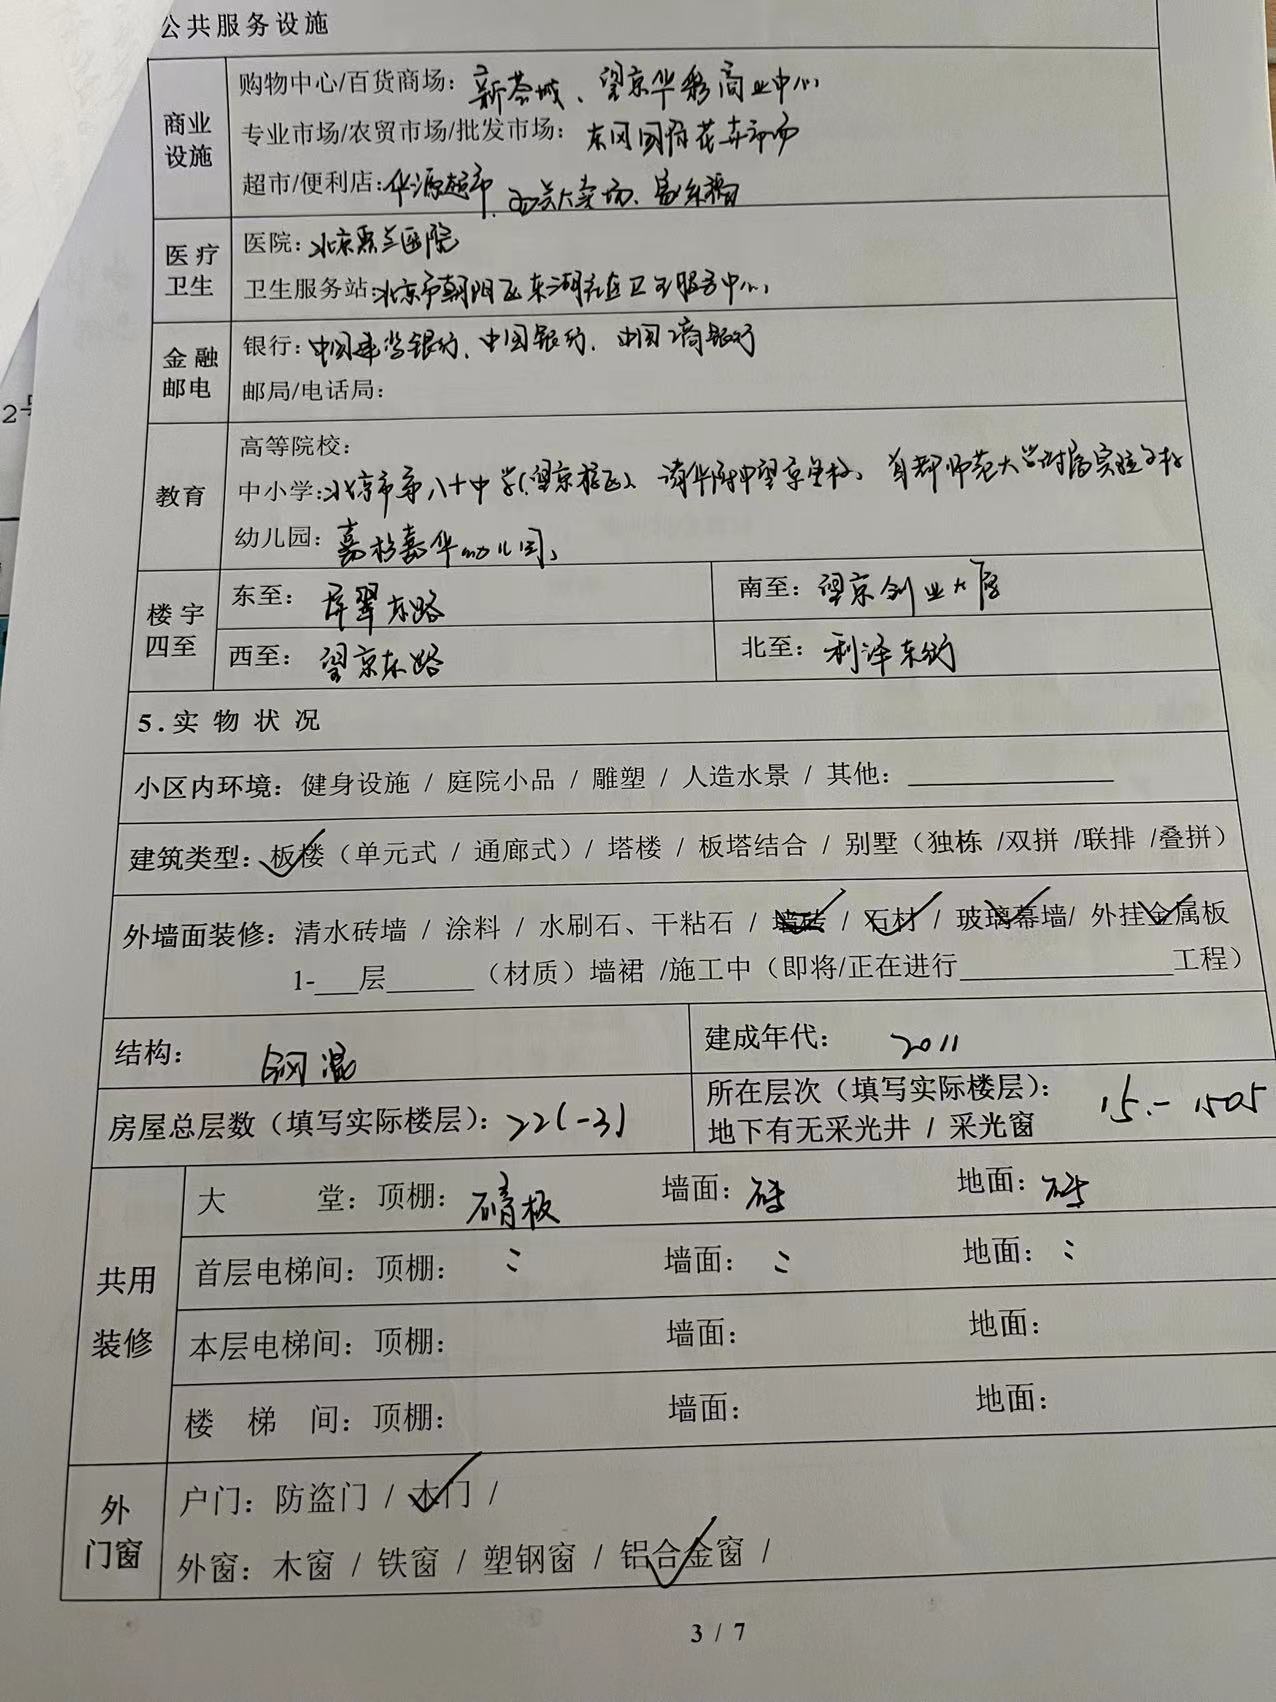 公共服务设施
商业设施
购物中心/百货商场：新荟城、望京华彩商业中心
专业市场/农贸市场/批发市场：东风国际花卉市场
超市/便利店：华源超市、大卖场、
医疗卫生
医院：北京 医院
卫生服务站：北京市朝阳区东湖社区卫生服务中心
金融邮电
银行：中国建设银行、中国银行、中国工商银行
邮局/电话局：
教育
高等院校：
中小学：北京市第八十中学（望京校区）、清华附中望京学校、首都师范大学附属实验学校
幼儿园：嘉杉嘉华幼儿园、
楼宇四至
东至：屏翠东路 南至：望京创业大厦
西至：望京东路 北至：利泽东街
5.实物状况
小区内环境：健身设施 / 庭院小品 / 雕塑 / 人造水景 / 其他：
建筑类型：板楼（单元式 / 通廊式）/ 塔楼 / 板塔结合 / 别墅（独栋 /双拼 /联排 /叠拼）
外墙面装修：清水砖墙 / 涂料 / 水刷石、干粘石 / 墙砖 / 石材 / 玻璃幕墙/ 外挂金属板
1-___层______（材质）墙裙 /施工中（即将/正在进行_______________工程）
结构：钢混 建成年代：2011
房屋总层数（填写实际楼层）：22(-3) 所在层次（填写实际楼层）：15.- 1505
地下有无采光井 / 采光窗
共用装修
大 堂：顶棚： 板 墙面：砖 地面：砖
首层电梯间：顶棚： 墙面： 地面：
本层电梯间：顶棚： 墙面： 地面：
楼 梯 间：顶棚： 墙面： 地面：
外门窗
户门：防盗门 / 木门 /
外窗：木窗 / 铁窗 / 塑钢窗 / 铝合金窗 /
3 / 7